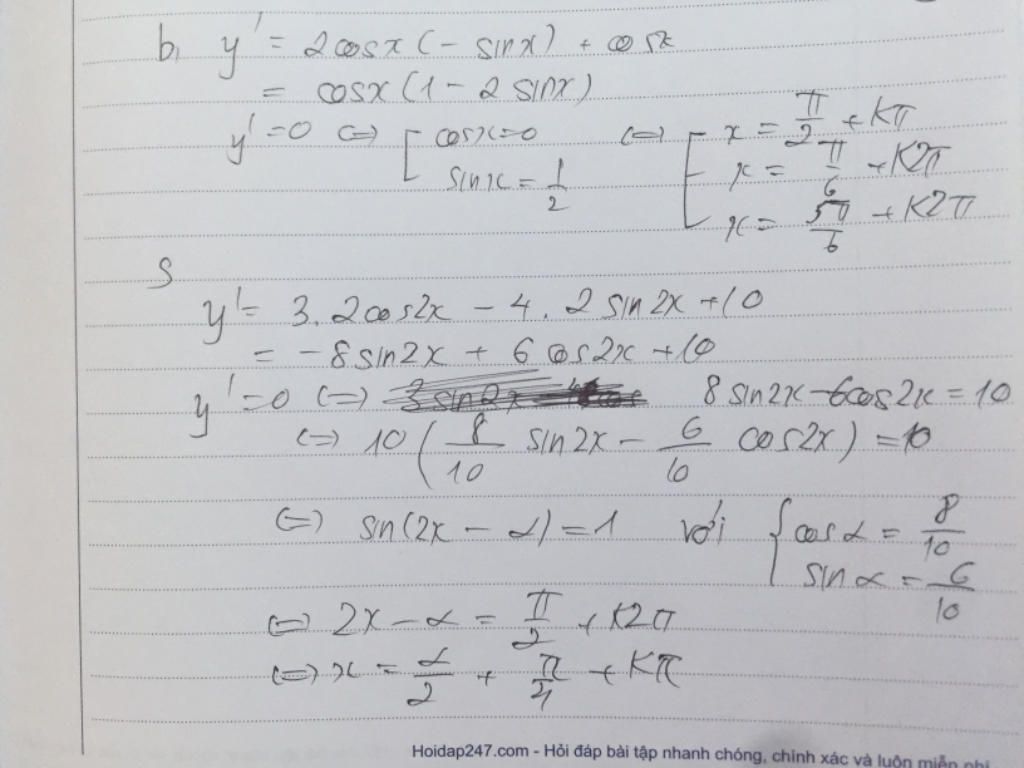 b, y' = 2cosx(- sinx) + cosx
= cosx(1 - 2 sinx)
y' = 0 <=> [ cosx = 0 <=> [ x = π/2 + kπ
sinx = 1/2 x = π/6 + k2π
x = 5π/6 + k2π
S
y' = 3.2cos2x - 4.2 sin2x + 10
= -8sin2x + 6 cos2x + 10
y' = 0 <=> 8 sin2x - 6cos2x = 10
<=> 10 ( 8/10 sin2x - 6/10 cos2x ) = 10
<=> sin(2x - α) = 1 với { cos α = 8/10
sin α = 6/10
<=> 2x - α = π/2 + k2π
<=> x = α/2 + π/4 + kπ
Hoidap247.com - Hỏi đáp bài tập nhanh chóng, chính xác và luôn miễn phí